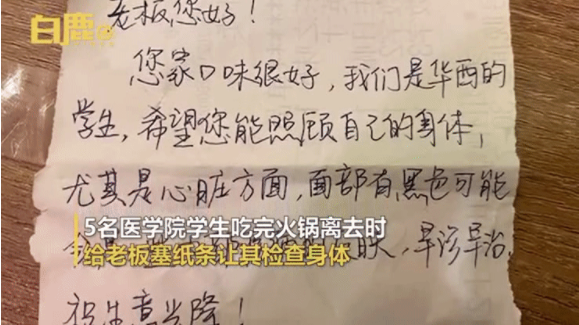 白鹿
老板您好！
您家口味很好，我们是华西的
学生，希望您能照顾自己的身体，
尤其是心脏方面，面部有黑色可能
5名医学院学生吃完火锅离去时
肤，早诊早治，
给老板塞纸条让其检查身体
祝生意兴隆！